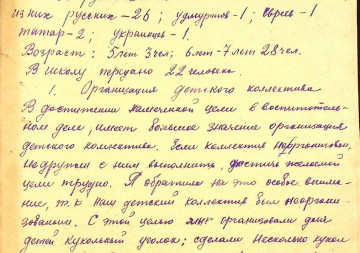 из них русских – 26; удмуртов – 1; евреев – 1
татар – 2; украинцев – 1.
Возраст: 5 лет 3 чел; 6 лет – 7 лет 28 чел.
В школу передано 22 человека.
1. Организация детского коллектива
В достижении намеченной цели в воспитатель-
ном деле, имеет большое значение организация
детского коллектива. Если коллектив неорганизован,
не дружен с ним выполнить, достичь желаемой
цели трудно. Я обратила на это особое внима-
ние, т.к наш детский коллектив был неоргани-
зованным. С этой целью организовали для
детей кукольный уголок; сделали несколько кукол